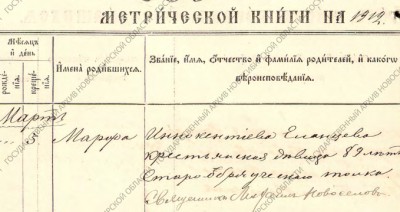 МЕТРИЧЕСКОЙ КНИГИ НА 1914
Мѣсяцъ
и день
рожде-
нія.
креще-
нія.
Имена родившихся.
Званіе, имя, отчество и фамилія родителей, и какого
вѣроисповѣданія.
Мартъ
5
Марѳа
Иннокентіева Еланцева
крестьянская дѣвица 82 лѣтъ
Старообрядческаго толка
Священникъ Новоселовъ